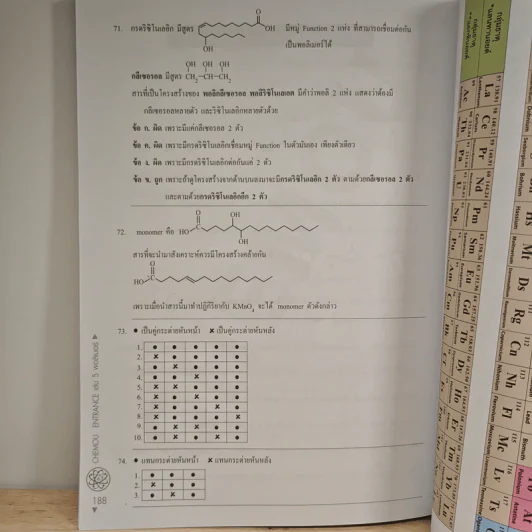 71. กรดริซิโนเลอิก มีสูตร
O
OH
OH
มีหมู่ Function 2 แห่ง ที่สามารถเชื่อมต่อกัน
เป็นพอลิเมอร์ได้
OH OH OH
กลีเซอรอล มีสูตร CH₂—CH—CH₂
สารที่เป็นโครงสร้างของ พอลิกลีเซอรอล พอลิริซิโนเลเอต มีคำว่าพอลิ 2 แห่ง แสดงว่าต้องมี
กลีเซอรอลหลายตัว และริซิโนเลอิกหลายตัวด้วย
ข้อ ก. ผิด เพราะมีแค่กลีเซอรอล 2 ตัว
ข้อ ค. ผิด เพราะมีกรดริซิโนเลอิกเชื่อมหมู่ Function ในตัวมันเอง เพียงตัวเดียว
ข้อ ง. ผิด เพราะมีกรดริซิโนเลอิกต่อกันแค่ 2 ตัว
ข้อ ข. ถูก เพราะถ้าดูโครงสร้างจากด้านบนลงมาจะมีกรดริซิโนเลอิก 2 ตัว ตามด้วยกลีเซอรอล 2 ตัว
และตามด้วยกรดริซิโนเลอิกอีก 2 ตัว
72. monomer คือ HO
O
OH
OH
สารที่จะนำมาสังเคราะห์ควรมีโครงสร้างคล้ายกัน
O
HO
เพราะเมื่อนำสารนี้มาทำปฏิกิริยากับ KMnO₄ จะได้ monomer ตัวดังกล่าว
73. ● เป็นคู่กระต่ายหันหน้า ✗ เป็นคู่กระต่ายหันหลัง
1. ● ● ● ● ●
2. ✗ ● ● ● ●
3. ● ✗ ● ● ●
4. ● ● ✗ ● ●
5. ✗ ✗ ● ● ●
6. ✗ ● ✗ ● ●
7. ✗ ● ● ✗ ●
8. ✗ ● ● ● ✗
9. ● ✗ ✗ ● ●
10. ● ✗ ● ✗ ●
74. ● แทนกระต่ายหันหน้า ✗ แทนกระต่ายหันหลัง
1. ● ● ●
2. ✗ ● ●
3. ● ✗ ●
CHEMOU ENTRANCE เล่ม 5 พอลิเมอร์
188
La
Ce
Pr
Nd
Pm
Sm
Eu
Gd
Tb
Dy
Ho
Er
Tm
Yb
Ac
Th
Pa
U
Np
Pu
Am
Cm
Hs
Mt
Ds
Rg
Cn
Nh
Fl
Mc
Lv
Ts